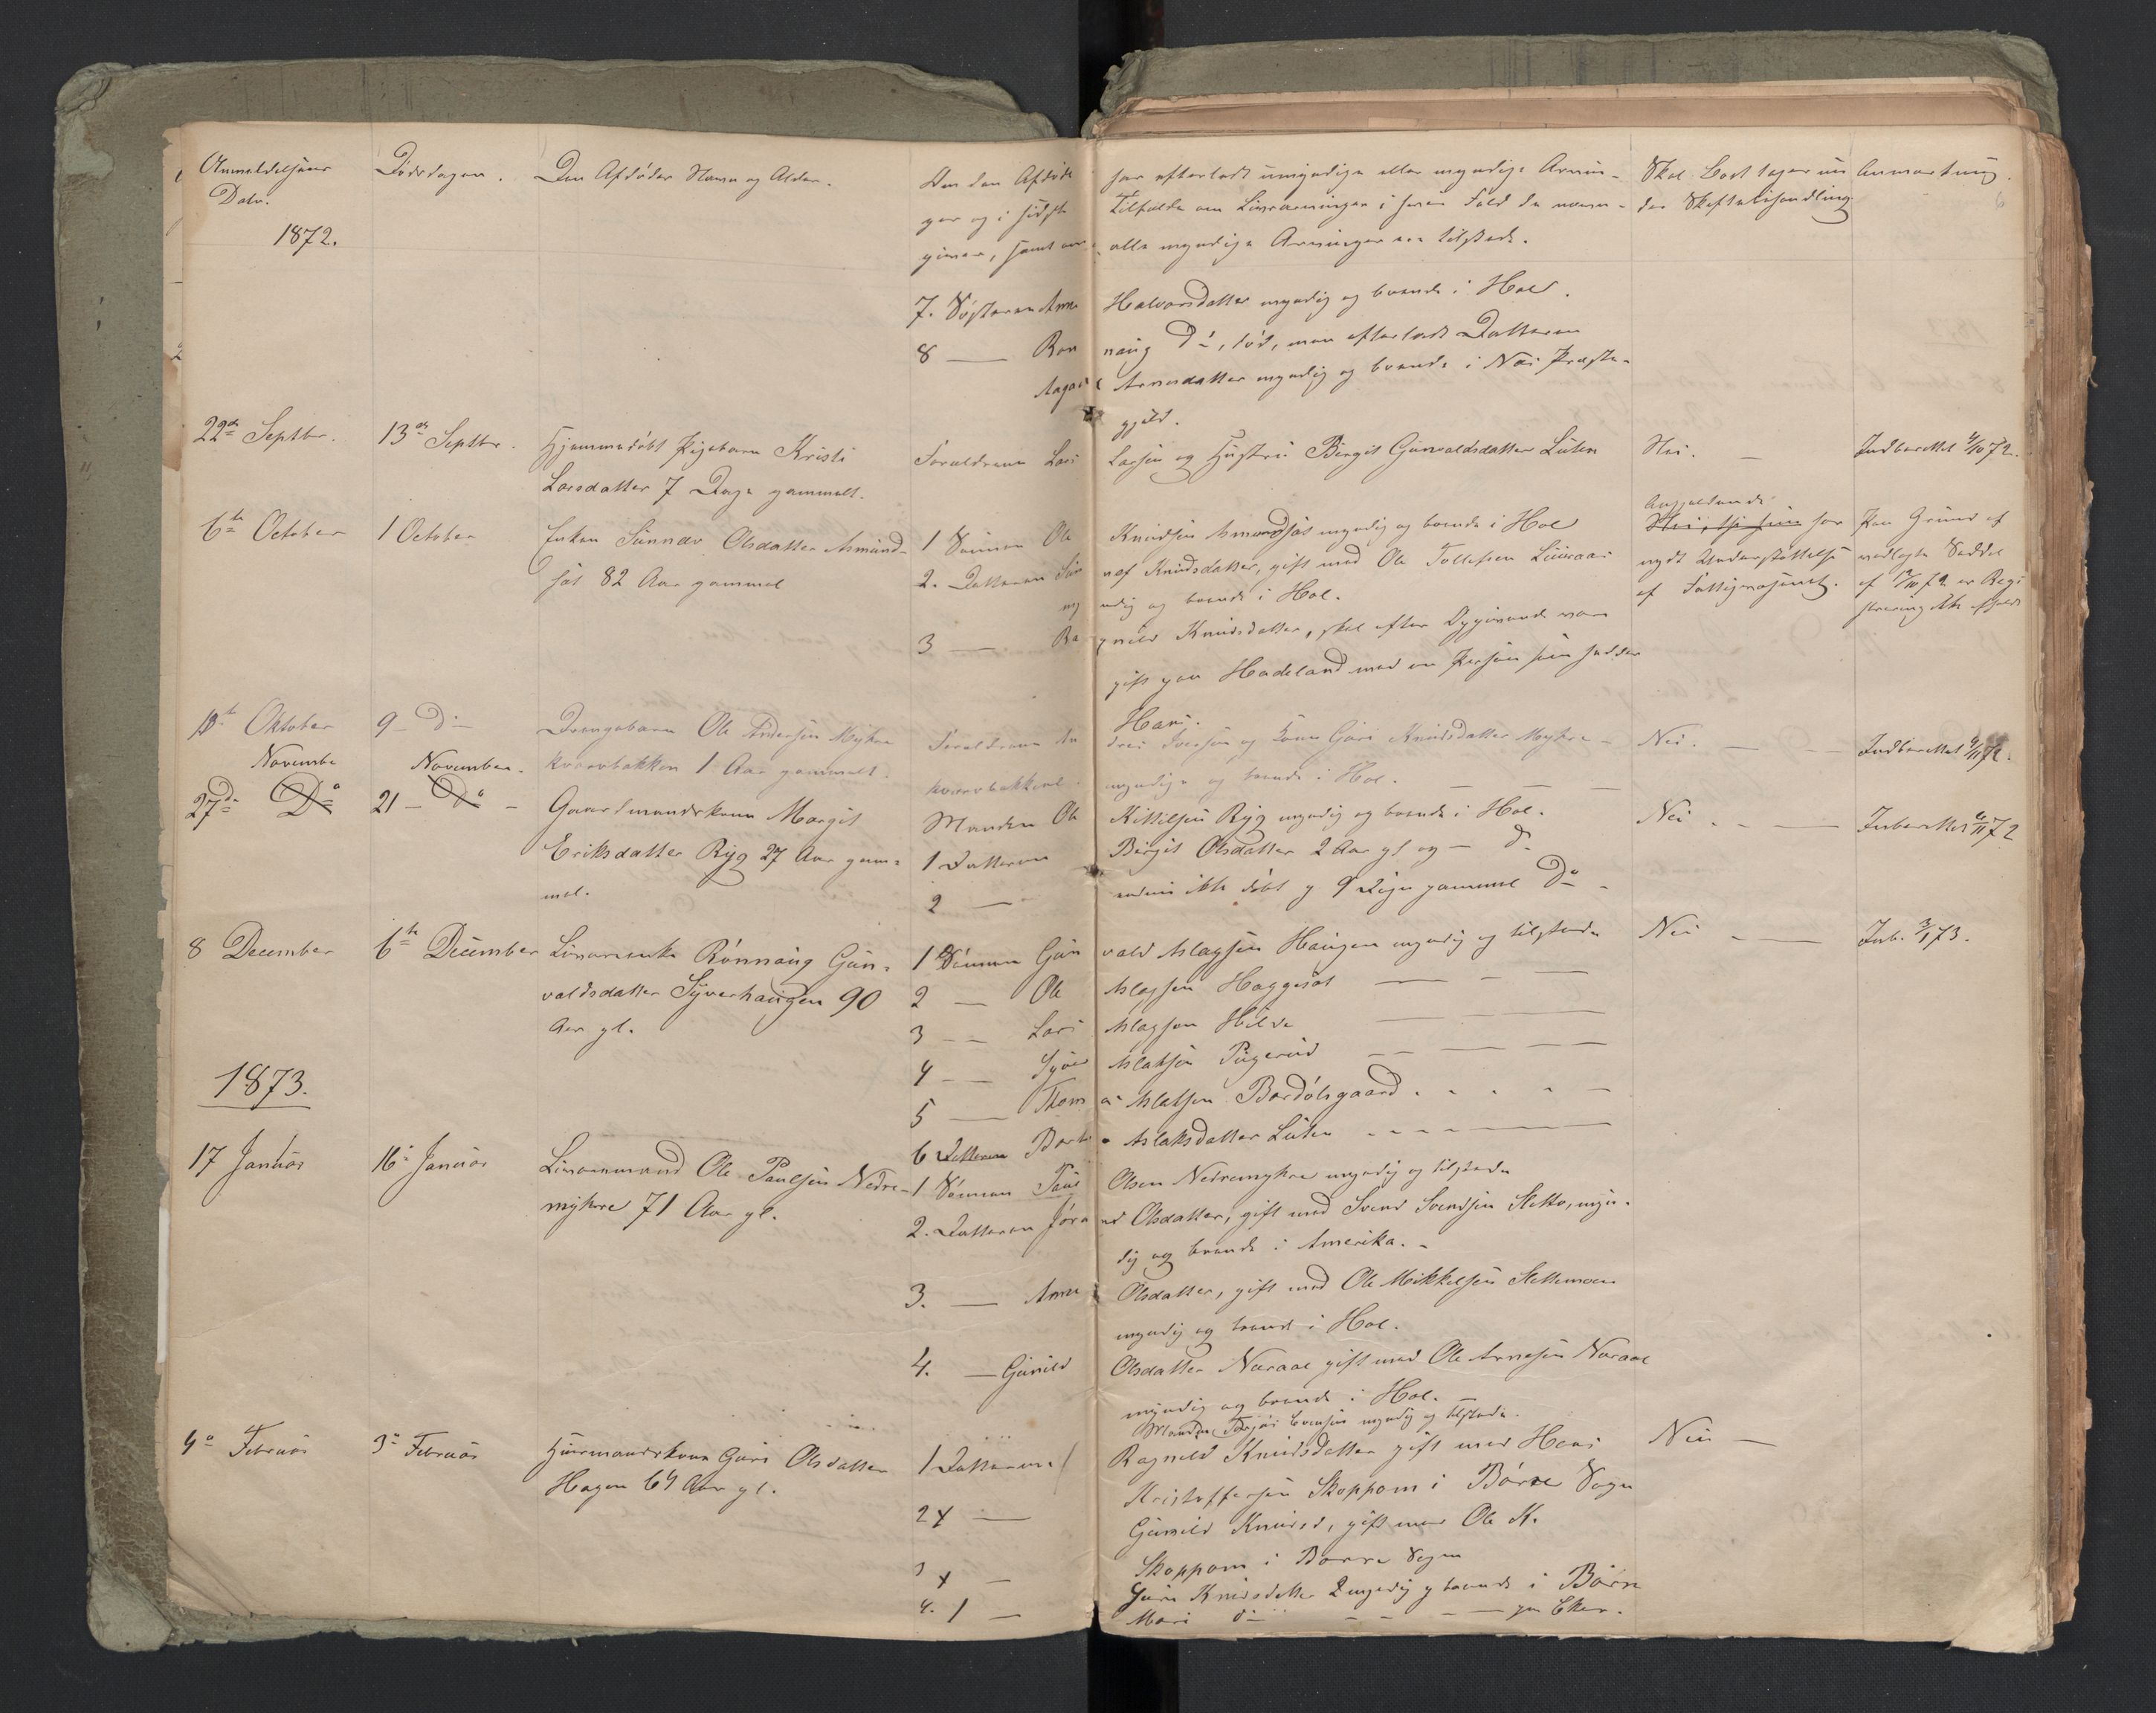 Anmeldelsens Dato.
Dødsdagen.
Den Afdødes Navn og Alder.
Om den Afdøde har efterladt umyndige eller myndige Arvin-
ger og i sidste Tilfælde om Livsarvinger i hvis Fald de navn-
gives, samt om alle myndige Arvinger ere tilstede.
Skal Boet tages un
der Skiftebehandling
Anmærkning.
1872.
7. Søsteren Anne Halvorsdatter myndig og boende i Hol.
8 — Ronnaug Do, død, men efterladt Datteren
Aagot Arnesdatter myndig og boende i Næs Præste-
gjeld.
22de Septbr. 13de Septbr. Hjemmedøbt Pigebarn Kristi
Larsdatter 7 Dage gammelt.
Forældrene Lars Larsen og Hustru Birgit Gunvaldsdatter Luten
Nei. —
Indberettet 4/10 72.
6te October 1 October Enken Sunnev Olsdatter Asmund-
søt 82 Aar gammel
1 Sønnen Ole Knudsen Asmundsøt myndig og boende i Hol
2. Datteren Sunnef Knudsdatter, gift med Ole Tollefsen
myndig og boende i Hol.
3 — Ragnild Knudsdatter, skal efter Opgivende være
gift paa Hadeland med en Person som hedder
Hans.
Angjeldende
har
nydt Understøttelse
af Fattigvæsenet.
Paa Grund af
vedlagte Seddel
af 12/10 72 er Regi
strering ikke afholdt
13te Oktober 9 — Do — Drengebarn Ole Andersen Myhre
kvævbakken 1 Aar gammelt.
Forældrene Andres Iversen og Kone Guri Knudsdatter Myhre-
kvævbakken myndige og boende i Hol.
Nei. —
Indberettet 4/11 72.
Novembr November.
27de Do 21 — Do — Gaardmandskone Margit
Eriksdatter Ryg 27 Aar gam-
mel.
Manden Ole Kittilsen Ryg myndig og boende i Hol.
1 Datteren Birgit Olsdatter 2 Aar gl og — do
2 — endnu ikke døbt og 9 Dage gammel Do —
Nei. —
Inberettet 72
8 December 6te December Livørenke Rønnaug Gun-
valdsdatter Syverhaugen 90
Aar gl.
1 Sønnen Gunvald Aslagsen Haugen myndig og tilstede
2 — Ole Aslagsen Haggesøt — — —
3 — Lars Aslagsen Hilde — — —
4 — Syver Aslaksen Tugerud — — —
5 — Thomas Aslaksen Bardølsgaard
6 Datteren Barbro Aslaksdatter Luten — — —
Nei —
Inb. 3/1 73.
1873.
17 Januar 16 Januar Livøremand Ole Paulsen Nedre-
myhre 71 Aar gl.
1 Sønnen Paul Olsen Nedremyhre myndig og tilstede
2. Datteren Jørand Olsdatter, gift med Svend Svendsen Sletto, myn-
dig og boende i Amerika. -
3. — Anne Olsdatter, gift med Ole Mikkelsen Slettemoen
myndig og boende i Hol.
4. — Gunild Olsdatter Naraal gift med Ole Arnesen Naraal
myndig og boende i Hol. —
4de Februar 3de Februar Huusmandskone Guri Olsdatter
Hagen 64 Aar gl.
Manden myndig og tilstede.
1 Datteren Ragnild Knudsdatter gift med Hans
Kristoffersen Skoppom i Børre Sogn
2 — Gunild Knudsd, gift med Ole K.
Skoppom i Borre Sogn
3 — Guri Knudsdatter myndig og boende i Børre
4. — Mari do — — — paa Eker.
Nei —